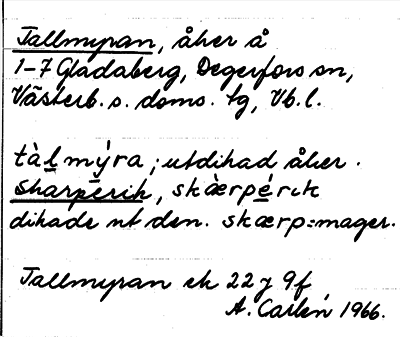 Tallmyran, åker å
1-7 Gladaberg, Degerfors sn,
Västerb. s. doms. lg, Vb. l.
tàl mýra; utdikad åker.
Skarperik, skàerpérik
dikade ut den. skærp=mager.
Tallmyran ek 22 j 9f
A. Carlén 1966.